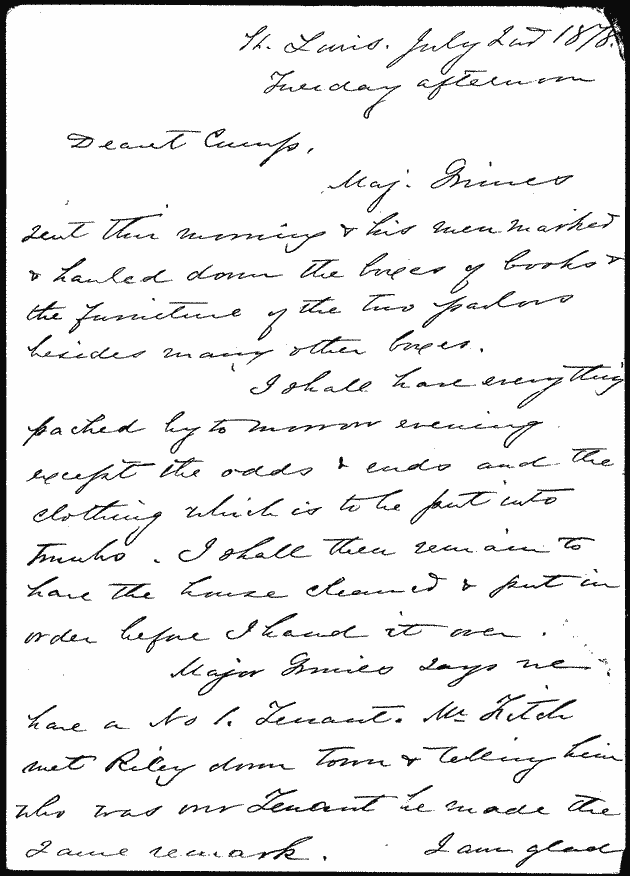 St. Louis. July 2nd 1878.
Tuesday afternoon
Dearest Cump,
Maj. Grimes
sent this morning & his men marked
& hauled down the boxes of books &
the furniture of the two parlors
besides many other boxes.
I shall have everything
packed by to morrow evening
except the odds & ends and the
clothing which is to be put into
trunks. I shall then remain to
have the house cleaned & put in
order before I hand it over.
Major Grimes says we
have a No 1. Tenant. Mr Fitch
met Riley down town & telling him
who was our Tenant he made the
same remark. I am glad